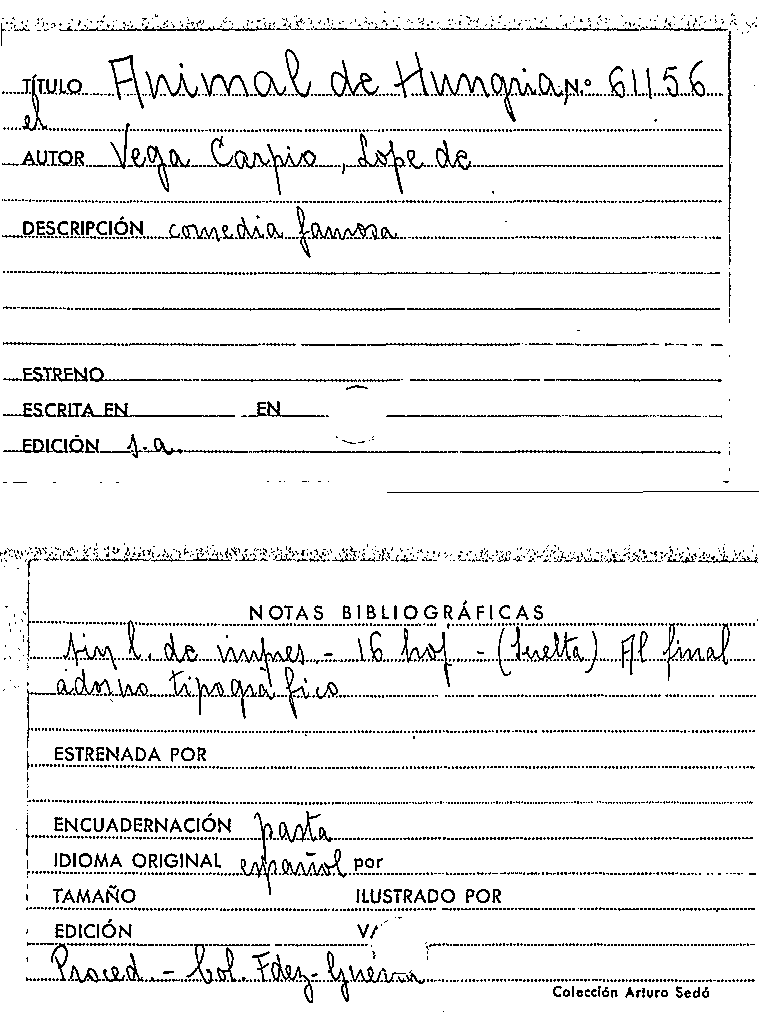 TÍTULO Animal de Hungria, N.º 61156
el
AUTOR Vega Carpio, Lope de
DESCRIPCIÓN comedia famosa
ESTRENO
ESCRITA EN EN
EDICIÓN s.a.
NOTAS BIBLIOGRÁFICAS
sin l. de impres. - 16 hoj - (Suelta) Al final
adorno tipográfico
ESTRENADA POR
ENCUADERNACIÓN pasta
IDIOMA ORIGINAL español por
TAMAÑO ILUSTRADO POR
EDICIÓN
Proced. - Col. Fdez-Guerra
Colección Arturo Sedó